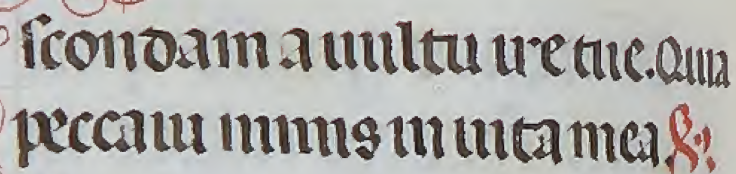 scondam a uultu ire tue. Quia
peccaui nimis in uita mea. &